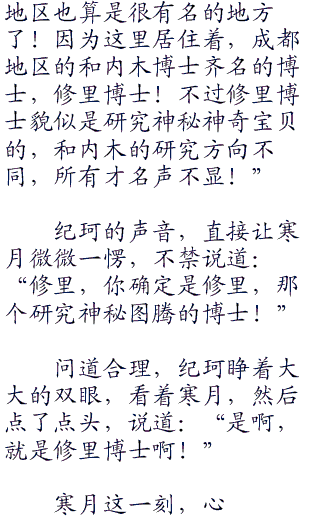 地区也算是很有名的地方
了！因为这里居住着，成都
地区的和内木博士齐名的博
士，修里博士！不过修里博
士貌似是研究神秘神奇宝贝
的，和内木的研究方向不
同，所有才名声不显！”
纪珂的声音，直接让寒
月微微一愣，不禁说道：
“修里，你确定是修里，那
个研究神秘图腾的博士！”
问道合理，纪珂睁着大
大的双眼，看着寒月，然后
点了点头，说道：“是啊，
就是修里博士啊！”
寒月这一刻，心